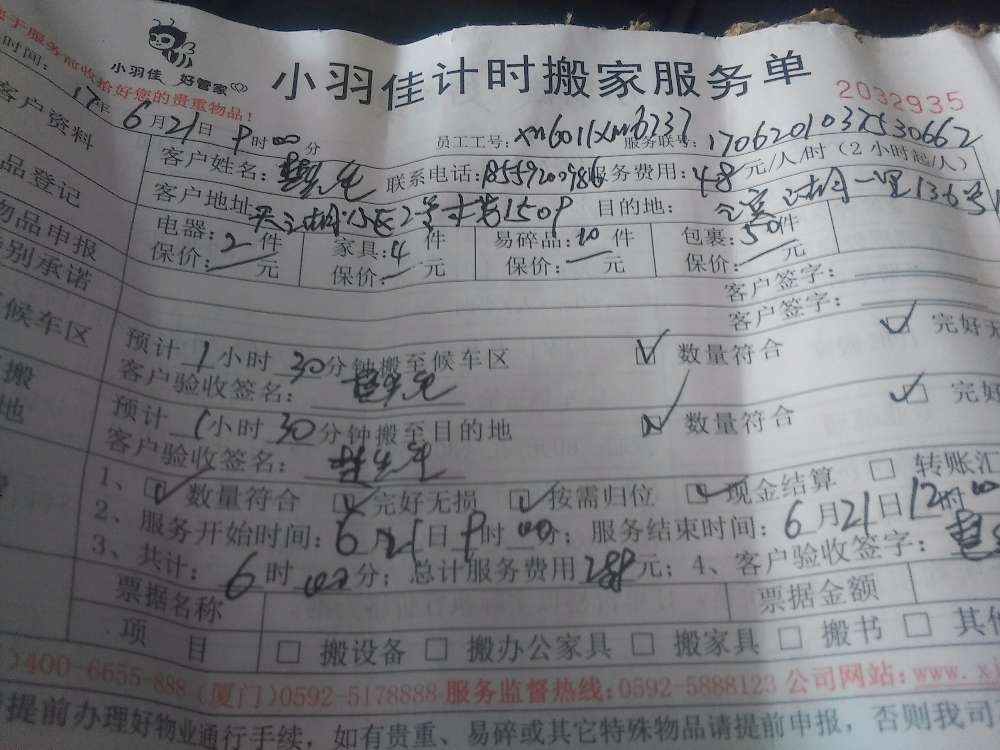 您于服务前收拾好您的贵重物品！
小羽佳 好管家
小羽佳计时搬家服务单
2032935
时间: 17年 6月21日 9时00分 员工工号: xm6011xm6237 服务联号: 1706201037530662
客户资料 客户姓名: 联系电话: 18559200986 服务费用: 48元/人/时（2小时起/人）
客户地址: 目的地: 一里136号
品登记 电器: 2件 家具: 4件 易碎品: 10件 包裹: 50件
物品申报 保价: 元 保价: 元 保价: 元 保价: 元
别承诺 客户签字:
客户签字:
候车区 预计 1小时 30分钟搬至候车区 数量符合 完好无
客户验收签名:
搬 预计 1小时 30分钟搬至目的地 数量符合 完好
地 客户验收签名:
1、 数量符合 完好无损 按需归位 现金结算 转账汇
2、服务开始时间: 6月21日9时00分; 服务结束时间: 6月21日12时00
3、共计: 6时00分; 总计服务费用288元; 4、客户验收签字:
票据名称 票据金额
项 目 搬设备 搬办公家具 搬家具 搬书 其他
)400-6655-888 (厦门)0592-5178888 服务监督热线:0592-5888123 公司网站:www.x
提前办理好物业通行手续，如有贵重、易碎或其它特殊物品请提前申报，否则我司